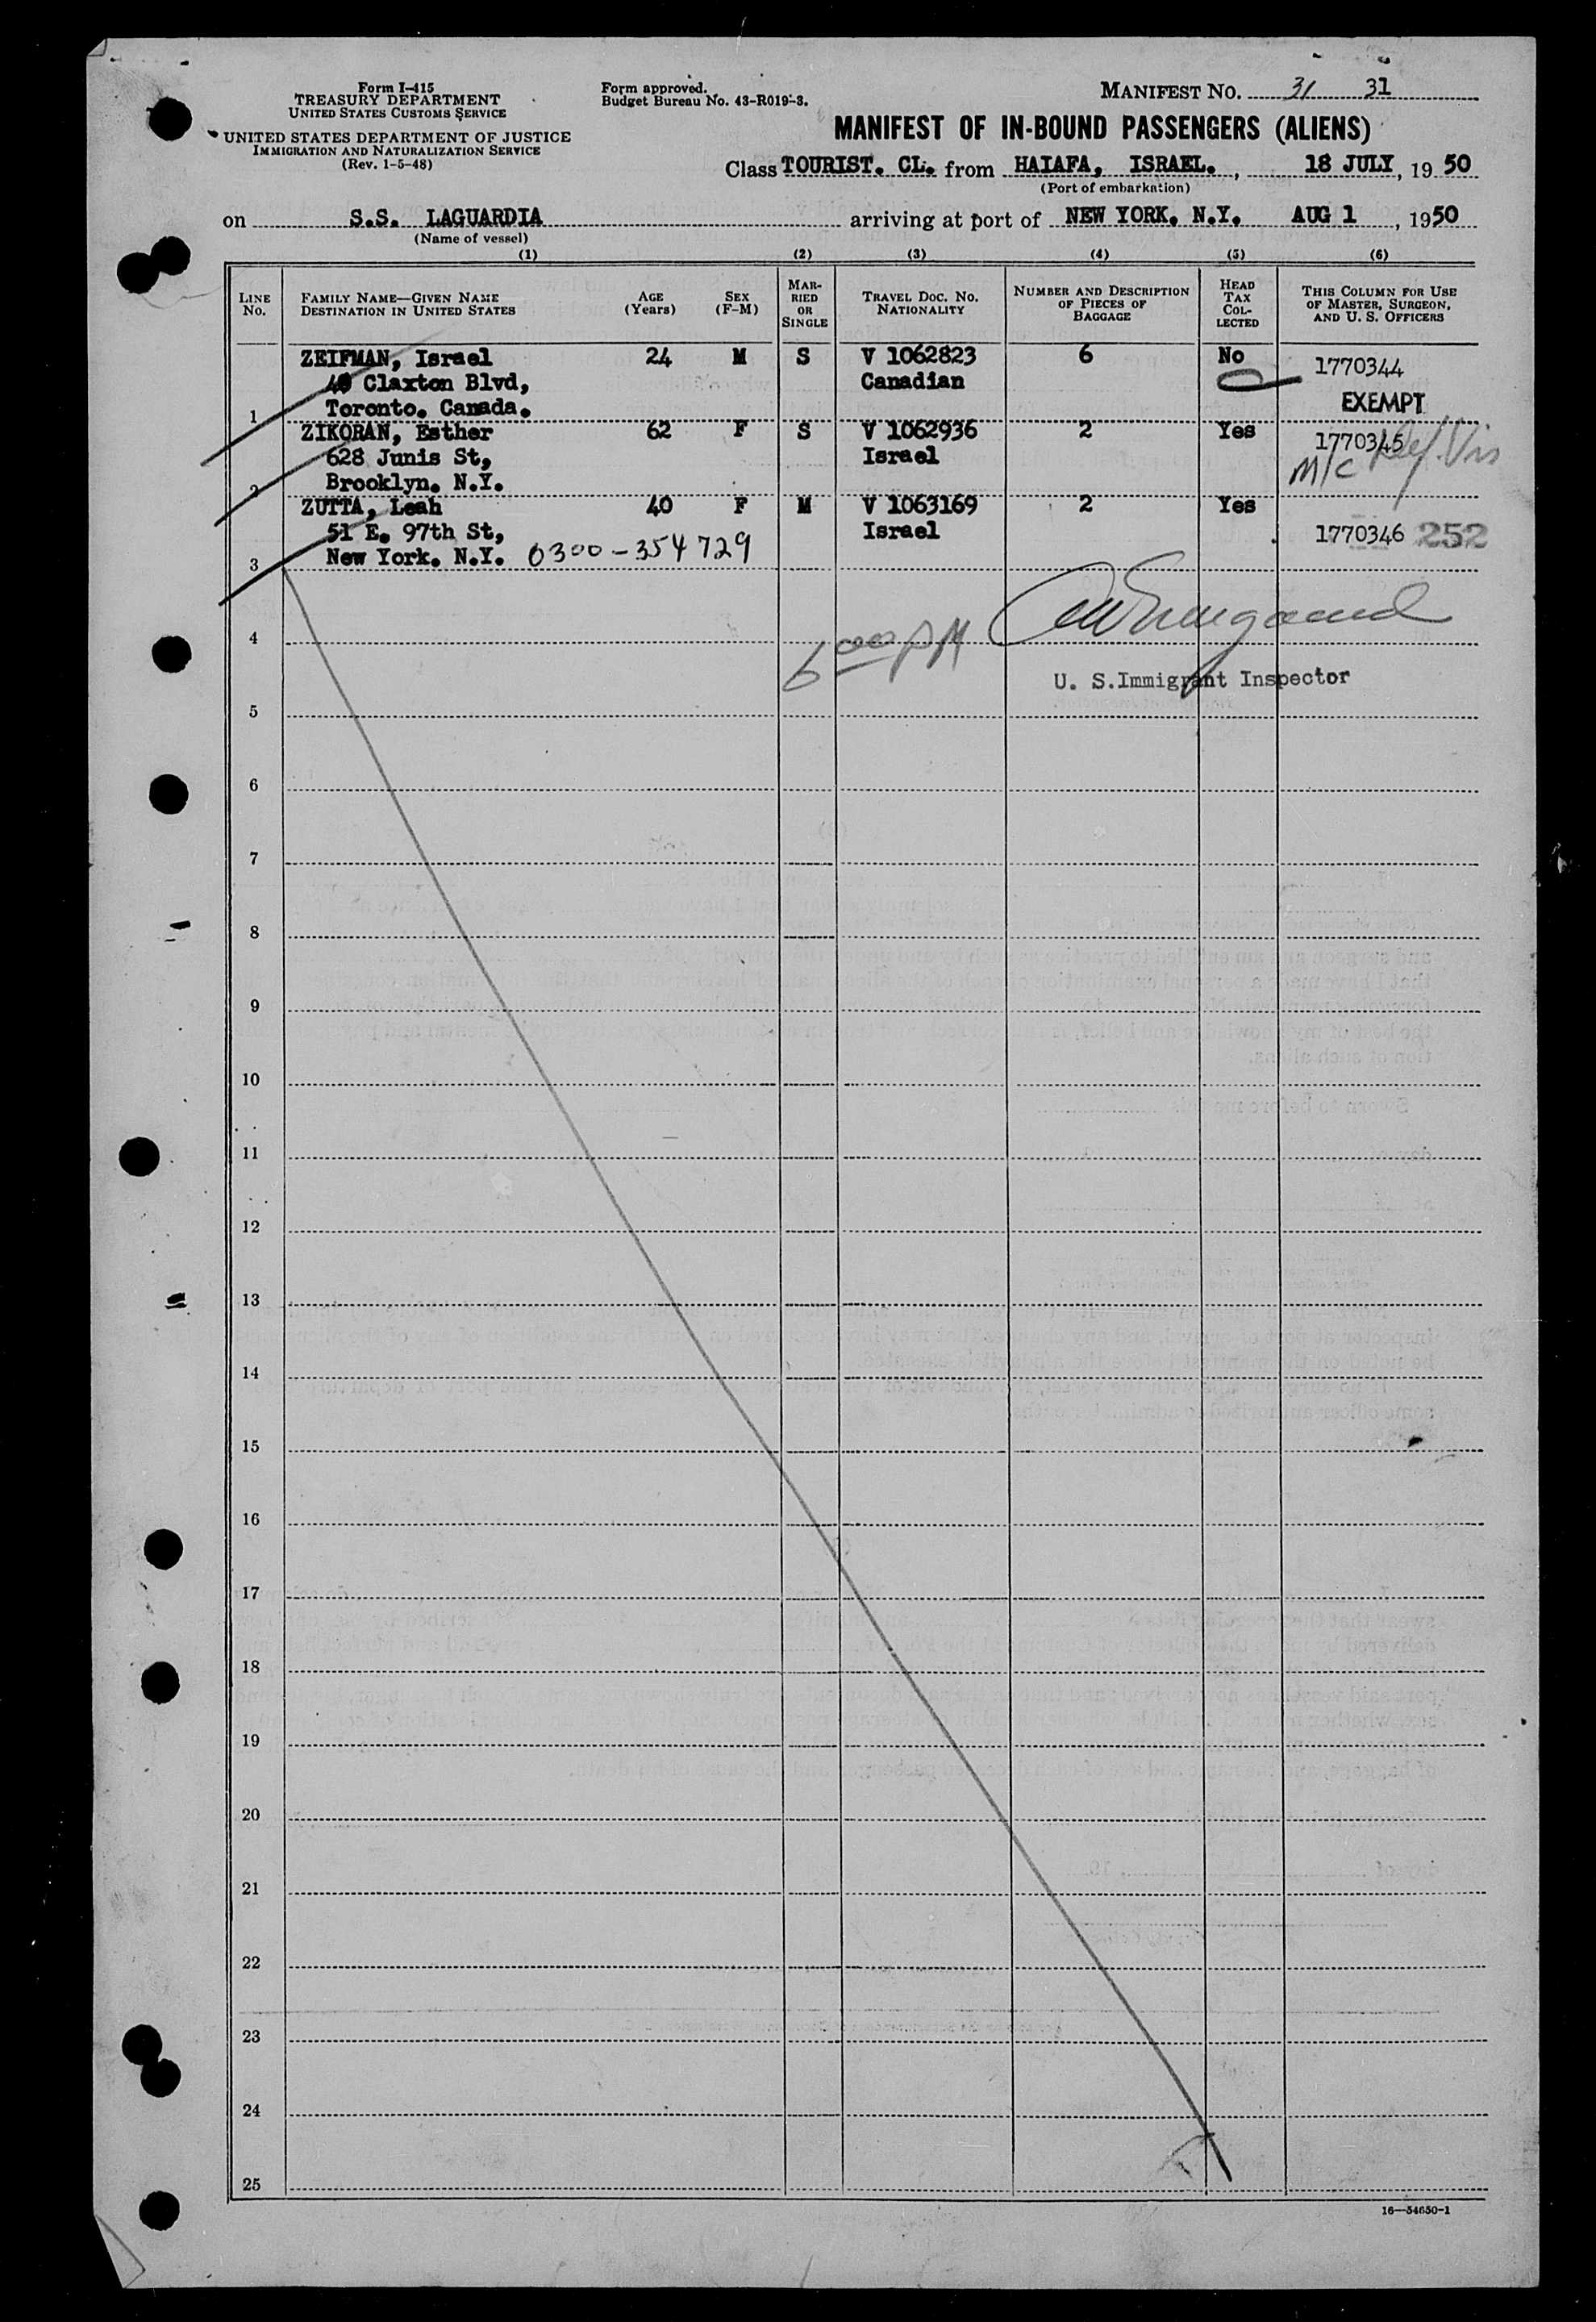 Form I-415
TREASURY DEPARTMENT
UNITED STATES CUSTOMS SERVICE
UNITED STATES DEPARTMENT OF JUSTICE
IMMIGRATION AND NATURALIZATION SERVICE
(Rev. 1-5-48)
Form approved.
Budget Bureau No. 43-R019-3.
MANIFEST NO. 31 31
MANIFEST OF IN-BOUND PASSENGERS (ALIENS)
Class TOURIST. CL. from HAIAFA, ISRAEL., 18 JULY, 19 50
(Port of embarkation)
on S.S. LAGUARDIA arriving at port of NEW YORK. N.Y. AUG 1, 1950
(Name of vessel)
(1) (2) (3) (4) (5) (6)
LINE No. FAMILY NAME—GIVEN NAME DESTINATION IN UNITED STATES AGE (Years) SEX (F-M) MARRIED OR SINGLE TRAVEL DOC. NO. NATIONALITY NUMBER AND DESCRIPTION OF PIECES OF BAGGAGE HEAD TAX COLLECTED THIS COLUMN FOR USE OF MASTER, SURGEON, AND U. S. OFFICERS
ZEIFMAN, Israel 24 M S V 1062823 6 No 1770344
Claxton Blvd, Canadian
1 Toronto. Canada. EXEMPT
ZIKORAN, Esther 62 F S V 1062936 2 Yes 1770345
628 Junis St, Israel M/C
2 Brooklyn. N.Y.
ZUTTA, Leah 40 F M V 1063169 2 Yes
51 E. 97th St, Israel 1770346 252
3 New York. N.Y. 0300-354729
4 6 00 PM
U. S.Immigrant Inspector
5
6
7
8
9
10
11
12
13
14
15
16
17
18
19
20
21
22
23
24
25
16—54650-1